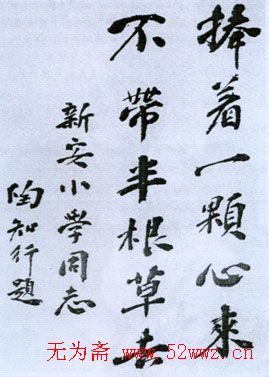 捧着一顆心来
不帶半根草去
新安小學同志
陶知行題
无为斋 www.52wwz.cn